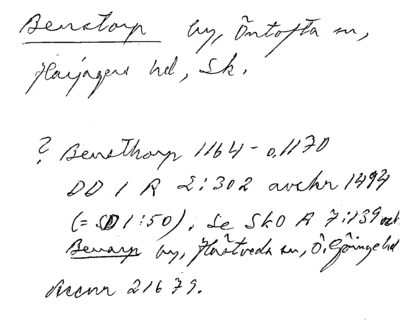 Benstorp by, Öntofta sn,
Harjagers hd, Sk.
? Bensthorp 1164 - o.1170
DD 1 R 2:302 avskr 1494
(= SD 1:50), se SkO A 7:139 och
Benarp by, Hästveda sn, Ö. Göinge hd
Accnr 21679.